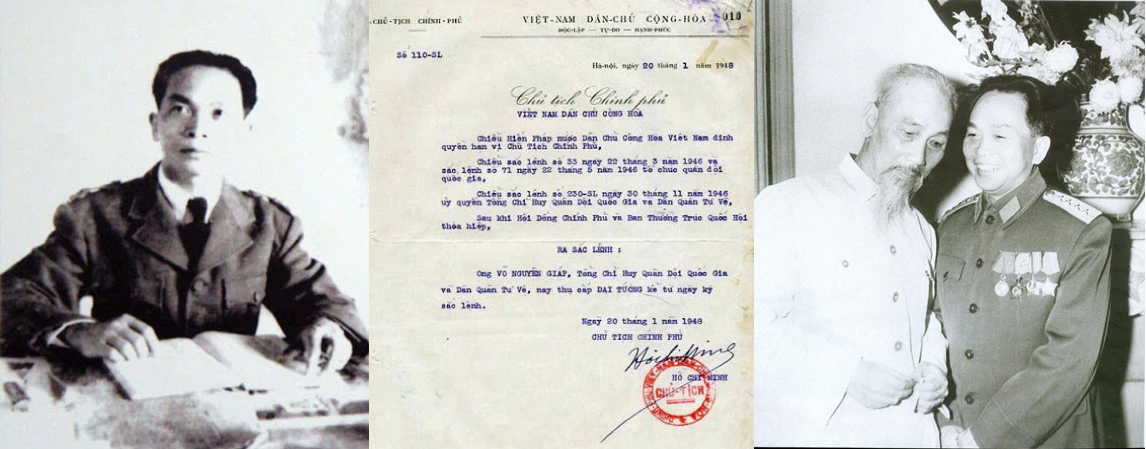 CHỦ-TỊCH CHÍNH-PHỦ
VIỆT-NAM DÂN-CHỦ CỘNG-HÒA
010
ĐỘC-LẬP — TỰ-DO — HẠNH-PHÚC
Số 110-SL
Hà-nội, ngày 20 tháng 1 năm 1948
Chủ tịch Chính phủ
VIỆT NAM DÂN CHỦ CỘNG HÒA
Chiếu Hiến Pháp nước Dân Chủ Cộng Hòa Việt Nam định
quyền hạn vị Chủ Tịch Chính Phủ,
Chiếu sắc lệnh số 33 ngày 22 tháng 3 năm 1946 và
sắc lệnh số 71 ngày 22 tháng 5 năm 1946 tổ chức quân đội
quốc gia,
Chiếu sắc lệnh số 230-SL ngày 30 tháng 11 năm 1946
uỷ quyền Tổng Chỉ Huy Quân Đội Quốc Gia và Dân Quân Tự Vệ,
Sau khi Hội Đồng Chính Phủ và Ban Thường Trực Quốc Hội
thỏa hiệp,
RA SẮC LỆNH :
Ông VÕ NGUYÊN GIÁP, Tổng Chỉ Huy Quân Đội Quốc Gia
và Dân Quân Tự Vệ, nay thụ cấp ĐẠI TƯỚNG kể từ ngày ký
sắc lệnh.
Ngày 20 tháng 1 năm 1948
CHỦ TỊCH CHÍNH PHỦ
HỒ CHÍ MINH
CHỦ-TỊCH